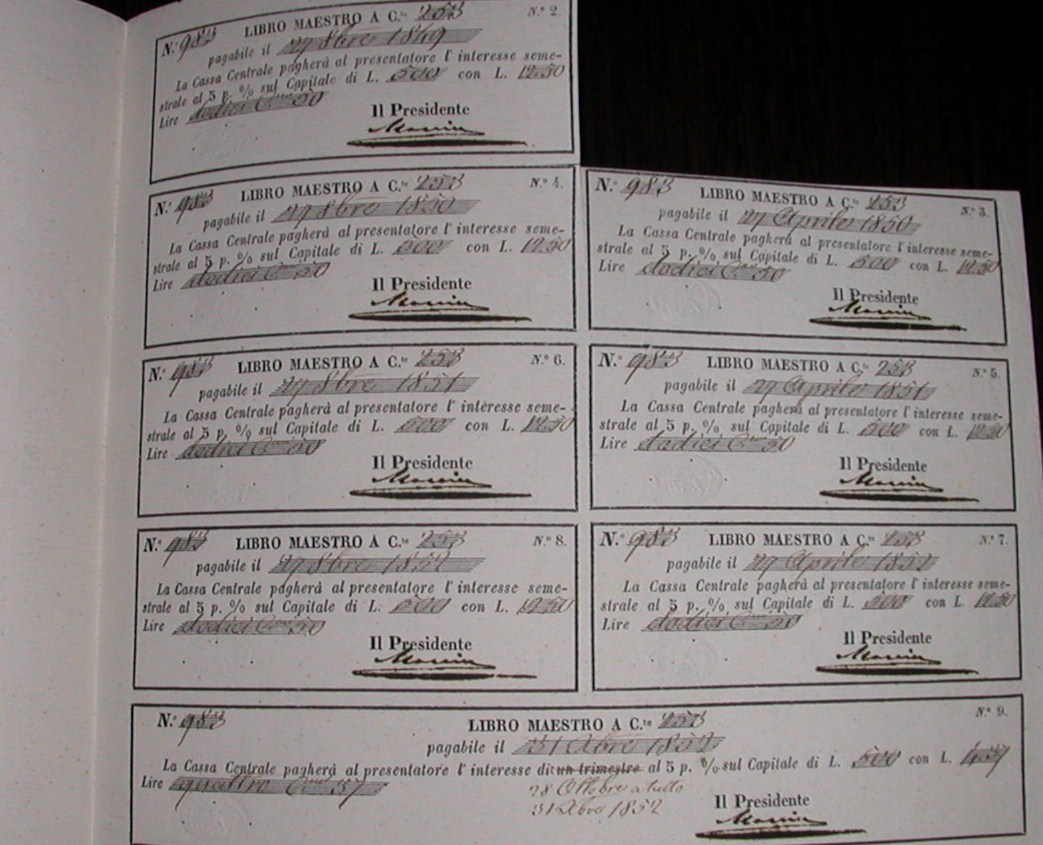 N.º 983 LIBRO MAESTRO A C.te 253 N.º 2.
pagabile il 27 8bre 1849
La Cassa Centrale pagherà al presentatore l' interesse seme-
strale al 5 p. % sul Capitale di L. 500 con L. 12.50
Lire dodici C.mi 50
Il Presidente
N.º 983 LIBRO MAESTRO A C.te 253 N.º 4.
pagabile il 27 8bre 1850
La Cassa Centrale pagherà al presentatore l' interesse seme-
strale al 5 p. % sul Capitale di L. 500 con L. 12.50
Lire dodici C.mi 50
Il Presidente
N.º 983 LIBRO MAESTRO A C.te 253 N.º 3.
pagabile il 27 Aprile 1850
La Cassa Centrale pagherà al presentatore l' interesse seme-
strale al 5 p. % sul Capitale di L. 500 con L. 12.50
Lire dodici C.mi 50
Il Presidente
N.º 983 LIBRO MAESTRO A C.te 253 N.º 6.
pagabile il 27 8bre 1851
La Cassa Centrale pagherà al presentatore l' interesse seme-
strale al 5 p. % sul Capitale di L. 500 con L. 12.50
Lire dodici C.mi 50
Il Presidente
N.º 983 LIBRO MAESTRO A C.te 253 N.º 5.
pagabile il 27 Aprile 1851
La Cassa Centrale pagherà al presentatore l' interesse seme-
strale al 5 p. % sul Capitale di L. 500 con L. 12.50
Lire dodici C.mi 50
Il Presidente
N.º 983 LIBRO MAESTRO A C.te 253 N.º 8.
pagabile il 27 8bre 1852
La Cassa Centrale pagherà al presentatore l' interesse seme-
strale al 5 p. % sul Capitale di L. 500 con L. 12.50
Lire dodici C.mi 50
Il Presidente
N.º 983 LIBRO MAESTRO A C.te 253 N.º 7.
pagabile il 27 Aprile 1852
La Cassa Centrale pagherà al presentatore l' interesse seme-
strale al 5 p. % sul Capitale di L. 500 con L. 12.50
Lire dodici C.mi 50
Il Presidente
N.º 983 LIBRO MAESTRO A C.te 253 N.º 9.
pagabile il 31 Xbre 1852
La Cassa Centrale pagherà al presentatore l' interesse di un trimestre al 5 p. % sul Capitale di L. 500 con L. 4.37
Lire quattro C.mi 37
28 Ottobre a tutto
31 Xbre 1852
Il Presidente